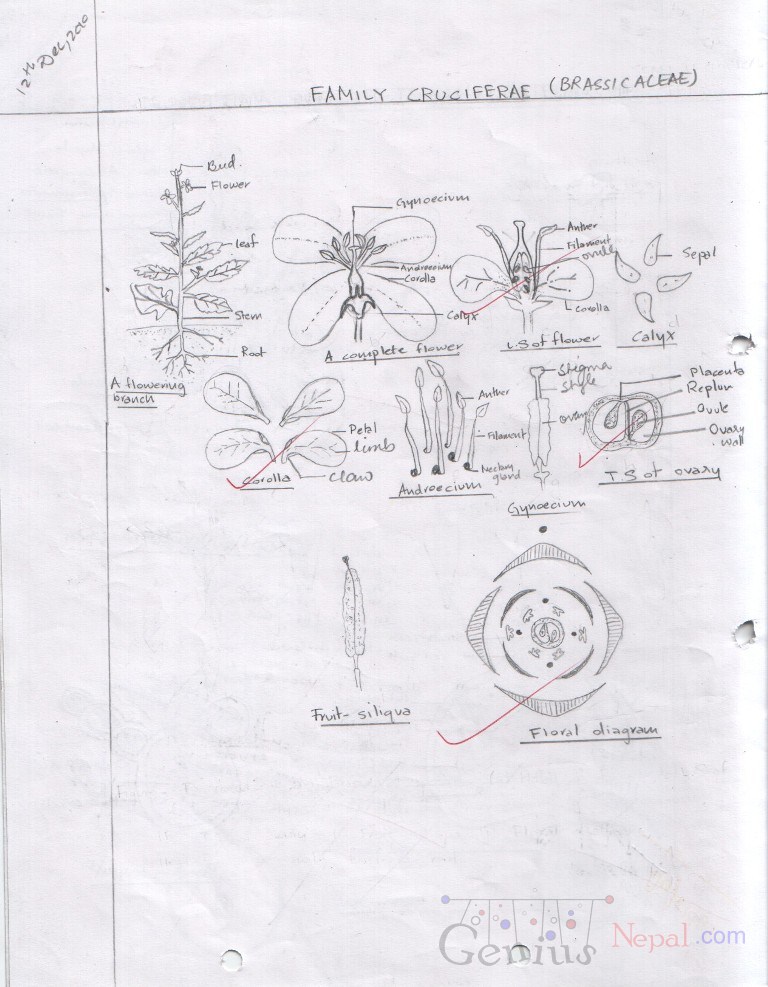 12th Dec, 2010
FAMILY CRUCIFERAE (BRASSICALEAE)
Bud.
Flower
leaf
Stem
Root
A flowering
branch
Gynoecium
Androecium
Corolla
Calyx
A complete flower
Anther
Filament
ovule
Corolla
L.S of flower
Sepal
Calyx
Petal
limb
Claw
Corolla
Anther
Filament
Nectary
gland
Androecium
Stigma
Style
ovary
Gynoecium
Placenta
Replum
Ovule
Ovary
wall
T.S of ovary
Fruit- siliqua
Floral diagram
Genius Nepal.com